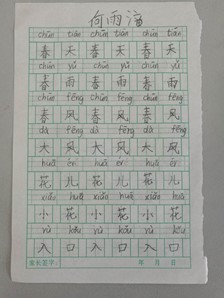 何雨涵
chūn tiān chūn tiān chūn tiān
春天春天春天
chūn yǔ chūn yǔ chūn yǔ
春雨春雨春雨
chūn fēng chūn fēng chūn fēng
春风春风春风
dà fēng dà fēng dà fēng
大风大风大风
huā ér huā ér huā ér
花儿花儿花儿
xiǎo huā xiǎo huā xiǎo huā
小花小花小花
rù kǒu rù kǒu rù kǒu
入口入口入口
家长签字: 年 月 日